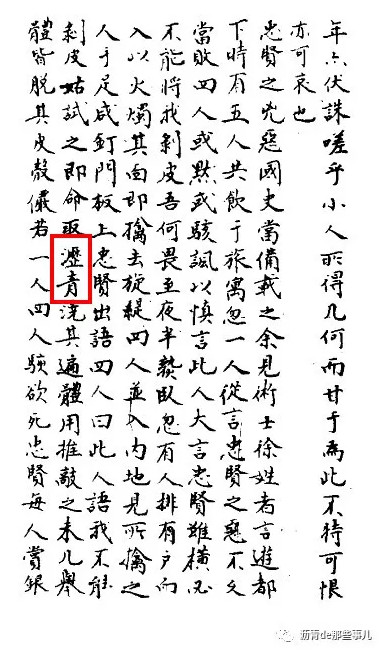 年六伏誅嗟乎小人所得几何而甘于為此不特可恨
亦可哀也
忠賢之兇惡國史當備載之余見術士徐姓者言遊都
下時有五人共飲于旅寓忽一人從言忠賢之惡不久
當敗四人或默或駭諷以慎言此人大言忠賢雖橫必
不能將我剝皮吾何畏至夜半熟臥忽有人排有戶而
入以火燭其面即擒去旋緹四人並入內地見所擒之
人手足咸釘門板上忠賢出語四人曰此人語我不能
剝皮姑試之即命取瀝青澆其遍體用推敲之未几舉
體皆脫其皮殼儼若一人四人駭欲死忠賢每人賞銀
沥青de那些事儿